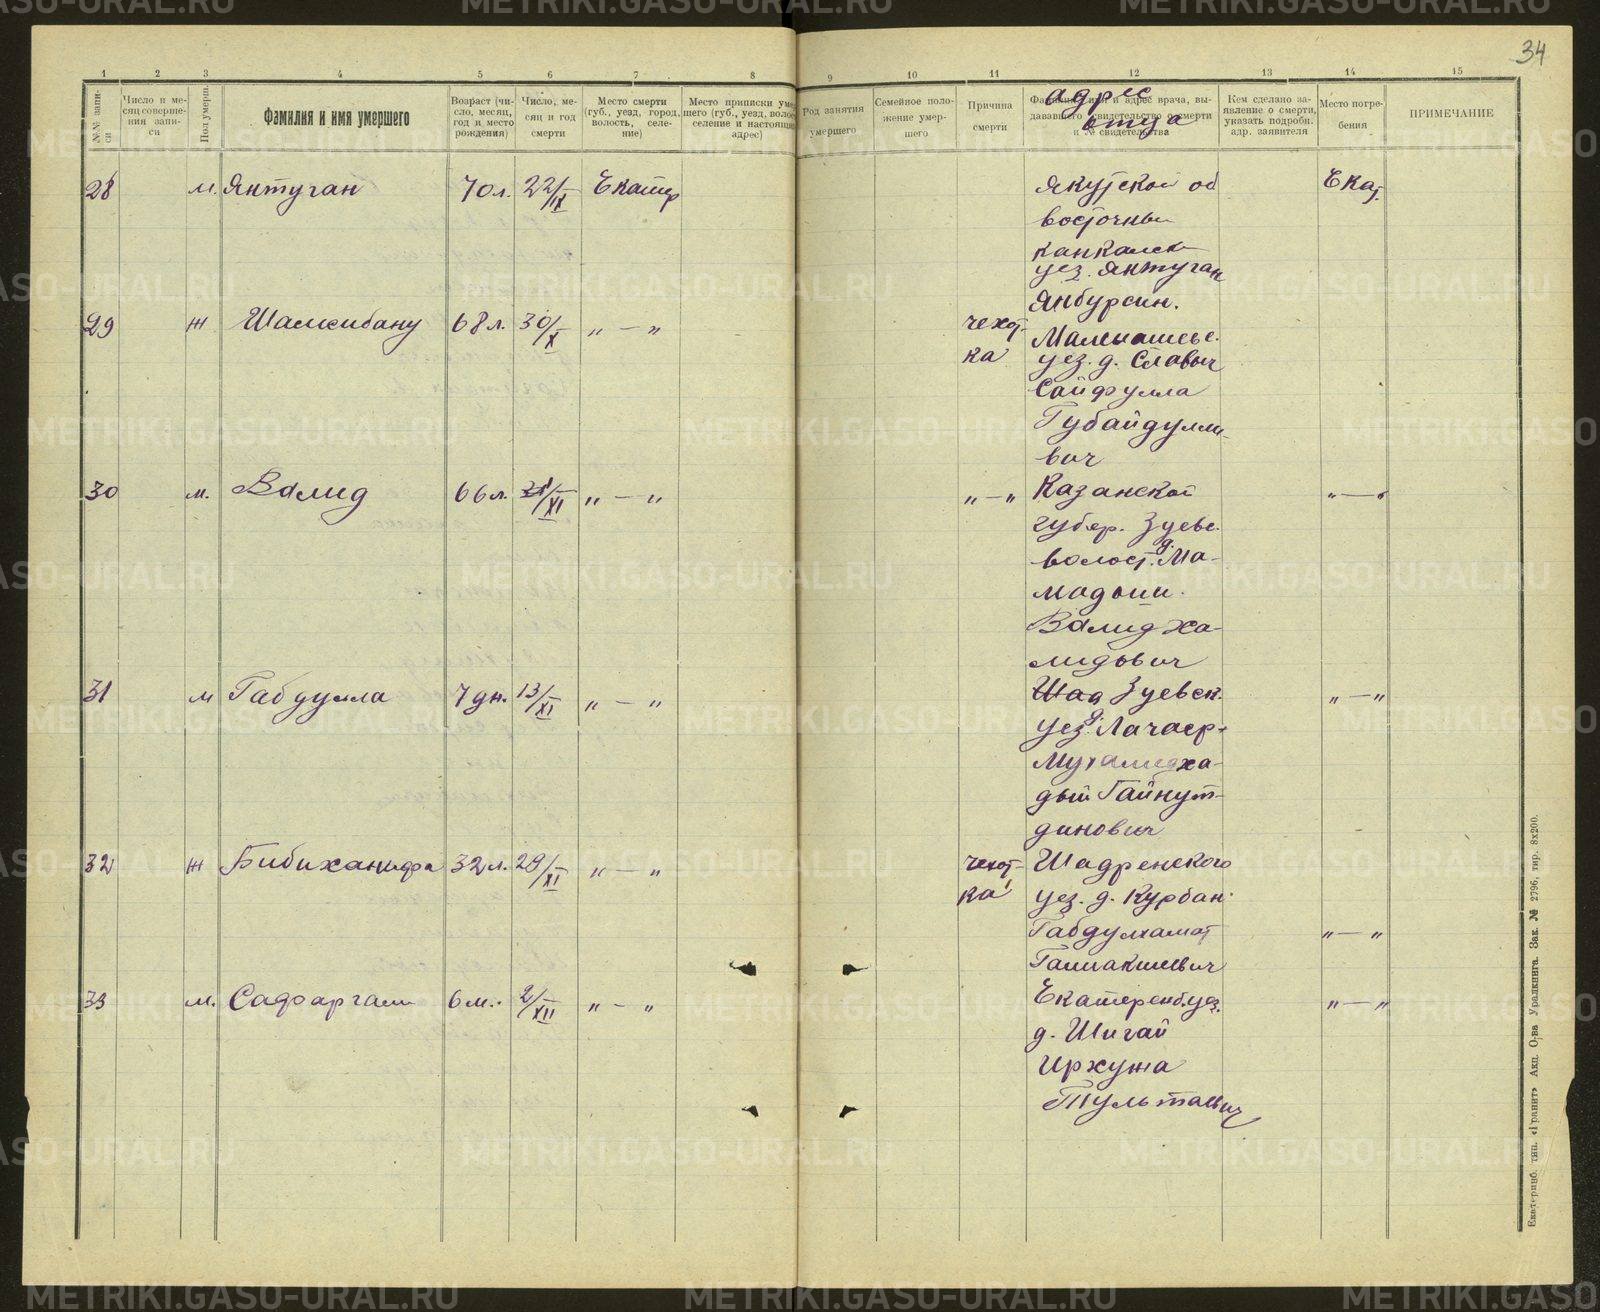 34
1 2 3 4 5 6 7 8 9 10 11 12 13 14 15
№№ записи
Число и месяц совершения записи
Пол умерш.
Фамилия и имя умершего
Возраст (число, месяц, год и место рождения)
Число, месяц и год смерти
Место смерти (губ., уезд, город, волость, селение)
Место приписки умершего (губ., уезд, волость, селение и настоящий адрес)
Род занятия умершего
Семейное положение умершего
Причина смерти
Фамилия, имя и адрес врача, выдававшего свидетельство о смерти и № свидетельства
адрес
отца
Кем сделано заявление о смерти, указать подробн. адр. заявителя
Место погребения
ПРИМЕЧАНИЕ
28 м. Янтуган 70 л. 22/IX Екатер Якутской об Екат.
восточны
уез. Янтуган
Янбурсин.
29 ж Шамсибану 68 л. 30/X „ — „ чехот-
ка
уез. д. Славыч
Сайфулла
Губайдулли-
вич
30 м. Валид 66 л. /XI „ — „ „ — „ Казанской „ — „
губер. Зуевс.
волост. д. Ма-
мадыш.
Валид Ха-
лидович
31 м Габдулла 7 дн. 13/XI „ — „ Шад Зуевск. „ — „
уез. д.
дый Гайнут-
динович
32 ж Бибиханифа 32 л. 29/XI „ — „ чехот- Шадренского
ка уез. д. Курбан
Габдулхамат „ — „
33 м. Сафаргали 6 м. 2/XII „ — „ Екатеренб. уез. „ — „
д. Шигай
Иркужа
Екатеринб. тип. «Гранит» Акц. О-ва Уралкнига. Зак. № 2796, тир. 8х200.
METRIKI.GASO-URAL.RU